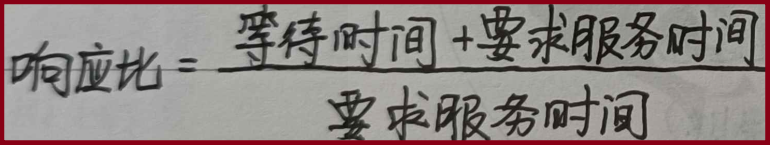 响应比 = 等待时间 + 要求服务时间
要求服务时间